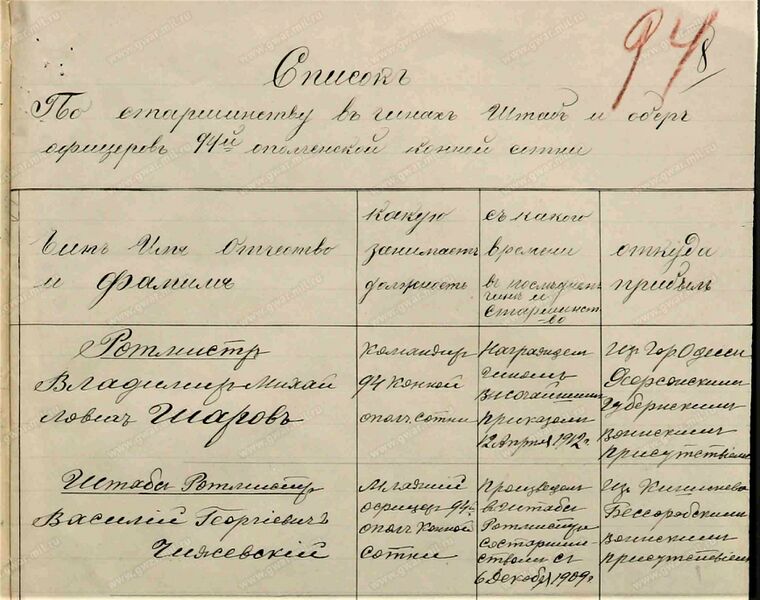 94
8
Списокъ
По старшинству въ чинахъ Штабъ и оберъ
офицеровъ 94й ополченской конной сотни
Чинъ Имя Отчество
и фамилія
какую
занимаетъ
должность
съ какого
времени
въ послѣднемъ
чинѣ и
старшинст-
во
откуда
прибылъ
Ротмистр
Владимир Михай
ловичъ Шаровъ
Командир
94 Конной
опол сотни
Награжден
чином
Высочайшим
приказом
12 Апреля 1912 г
Из Гор Одессы
Херсонским
Губернским
Воинским
присутствием
Штабс Ротмистр
Василій Георгіевичъ
Чижевскій
Младший
офицер 94й
опол Конной
сотни
Произведен
в Штабс
Ротмистры
со старшин
ством с
6 Декабря 1909 г
Из Кишинева
Бессарабским
Воинским
присутствием
www.gwar.mil.ru